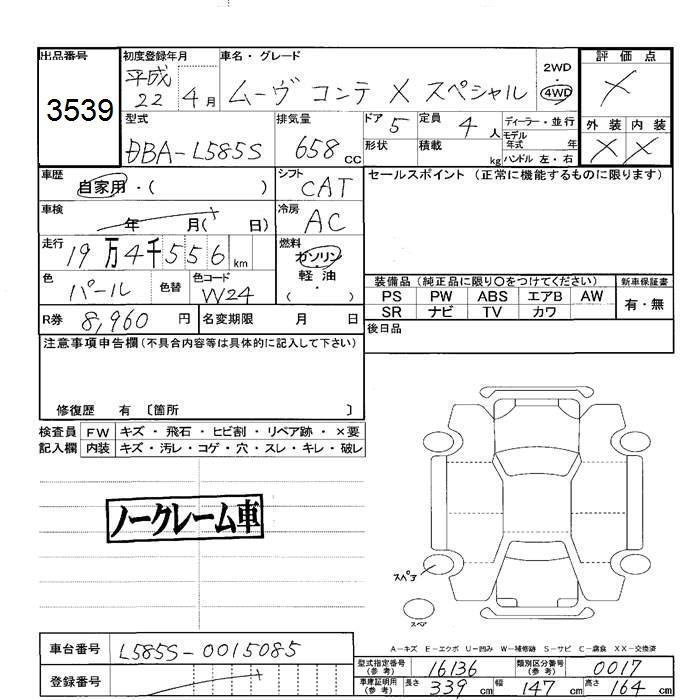 出品番号
3539
初度登録年月
平成
22 4月
車名・グレード
ムーヴ コンテ X スペシャル
2WD
・
4WD
評価点
X
外装 内装
X X
型式
DBA-L585S
排気量
658 cc
ドア 5
定員 4人
ディーラー・並行
モデル
年式 年
形状
積載 kg
ハンドル 左・右
車歴
自家用・( )
シフト
CAT
セールスポイント (正常に機能するものに限ります)
車検
年 月( 日)
冷房
AC
走行
19万4千556km
燃料
ガソリン
・
軽油
( )
色
パール
色替
色コード
W24
装備品 (純正品に限り○をつけてください)
新車保証書
PS PW ABS エアB AW
有・無
SR ナビ TV カワ
R券 8,960円
名変期限 月 日
後日品
注意事項申告欄 (不具合内容等は具体的に記入して下さい)
修復歴 有 〔箇所 〕
検査員 FW キズ・飛石・ヒビ割・リペア跡・×要
記入欄 内装 キズ・汚レ・コゲ・穴・スレ・キレ・破レ
ノークレーム車
スペア
スペア
A-キズ E-エクボ U-凹み W-補修跡 S-サビ C-腐食 XX-交換済
車台番号
L585S-0015085
登録番号
型式指定番号
(参考)
16136
類別区分番号
(参考)
0017
車庫証明用
(参考)
長さ 339 cm
幅 147 cm
高さ 164 cm